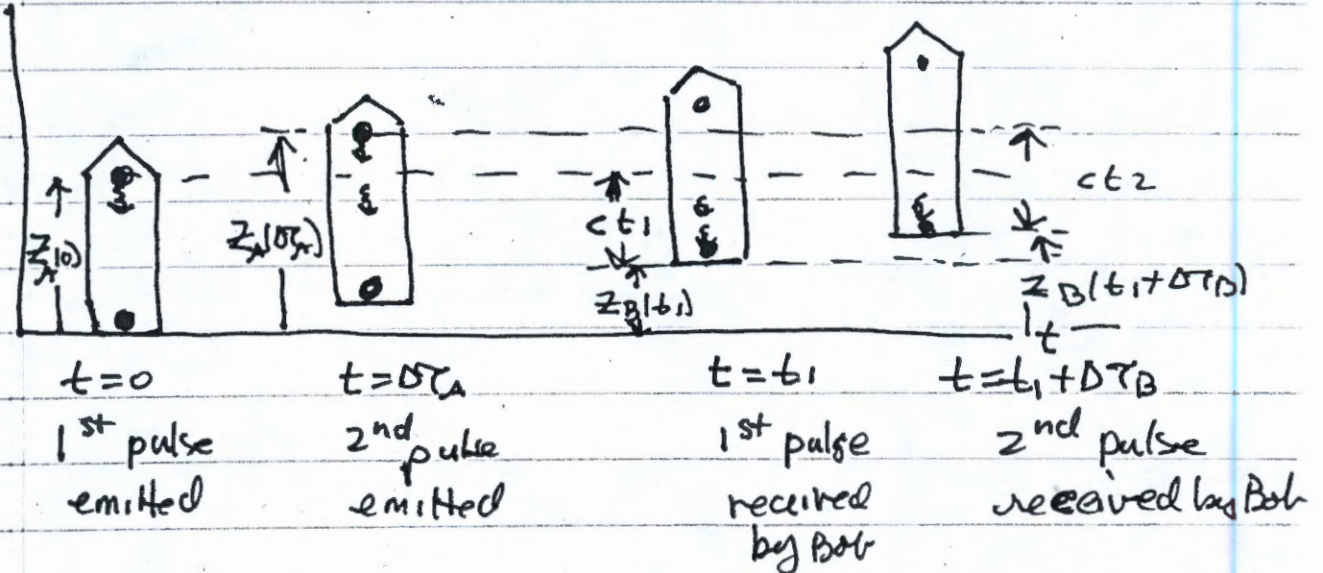 Z_A(0)
Z_A(Δτ_A)
ct₁
Z_B(t₁)
ct₂
Z_B(t₁+Δτ_B)
t
t=0
1st pulse
emitted
t=Δτ_A
2nd
pulse
emitted
t=t₁
1st pulse
received
by Bob
t=t₁+Δτ_B
2nd pulse
received by Bob